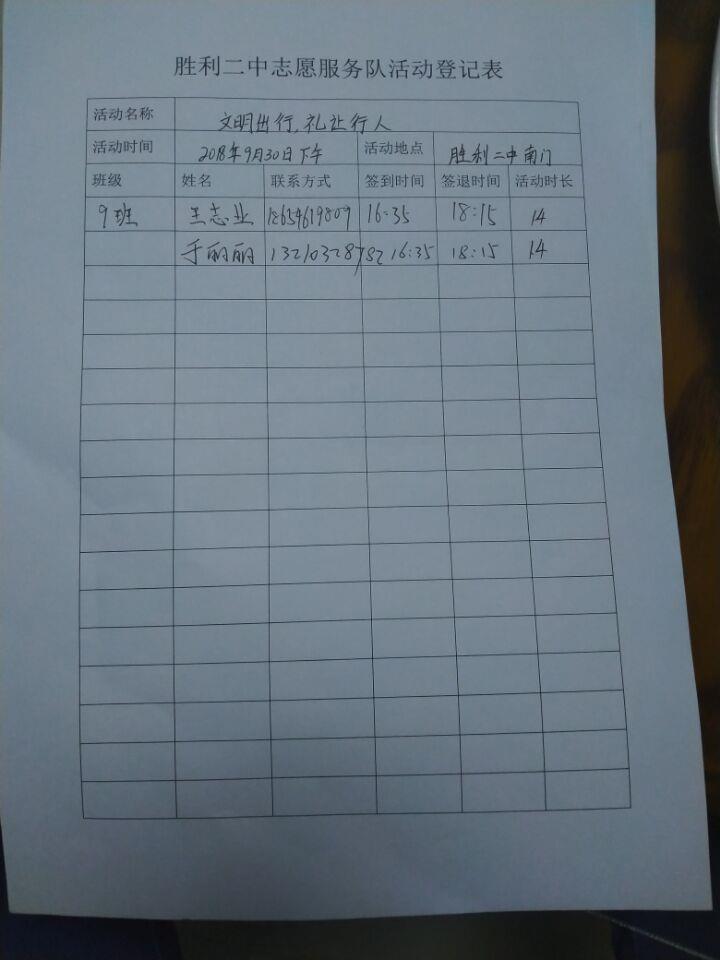 胜利二中志愿服务队活动登记表
活动名称 文明出行,礼让行人
活动时间 2018年9月30日下午 活动地点 胜利二中南门
班级 姓名 联系方式 签到时间 签退时间 活动时长
9班 王志业 18654619809 16:35 18:15 14
于丽丽 13210328782 16:35 18:15 14